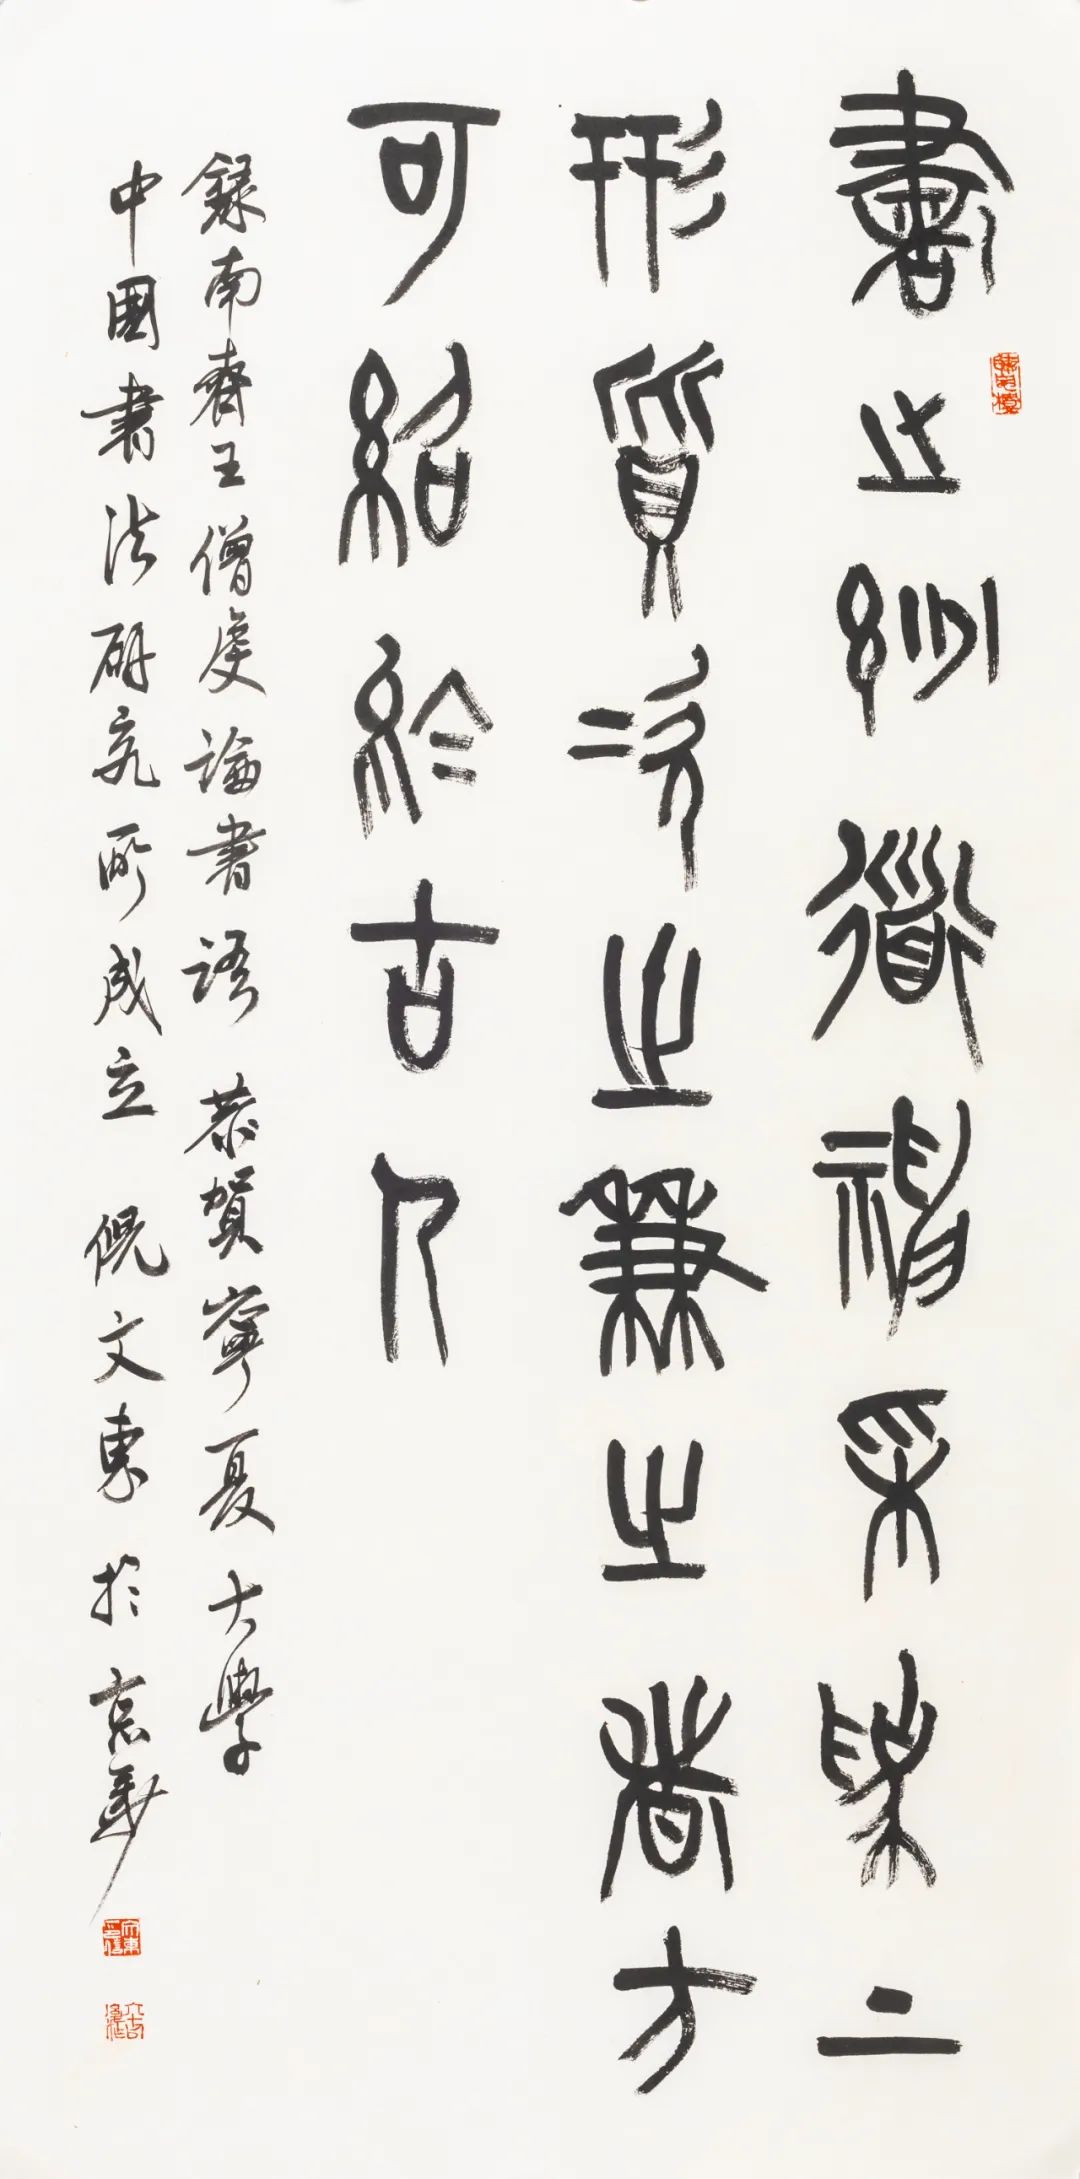 書之妙道神采為上
形質次之兼之者方
可紹於古人
錄南齊王僧虔論書語 恭賀寧夏大學
中國書法研究所成立 倪文東於京華
文東印信